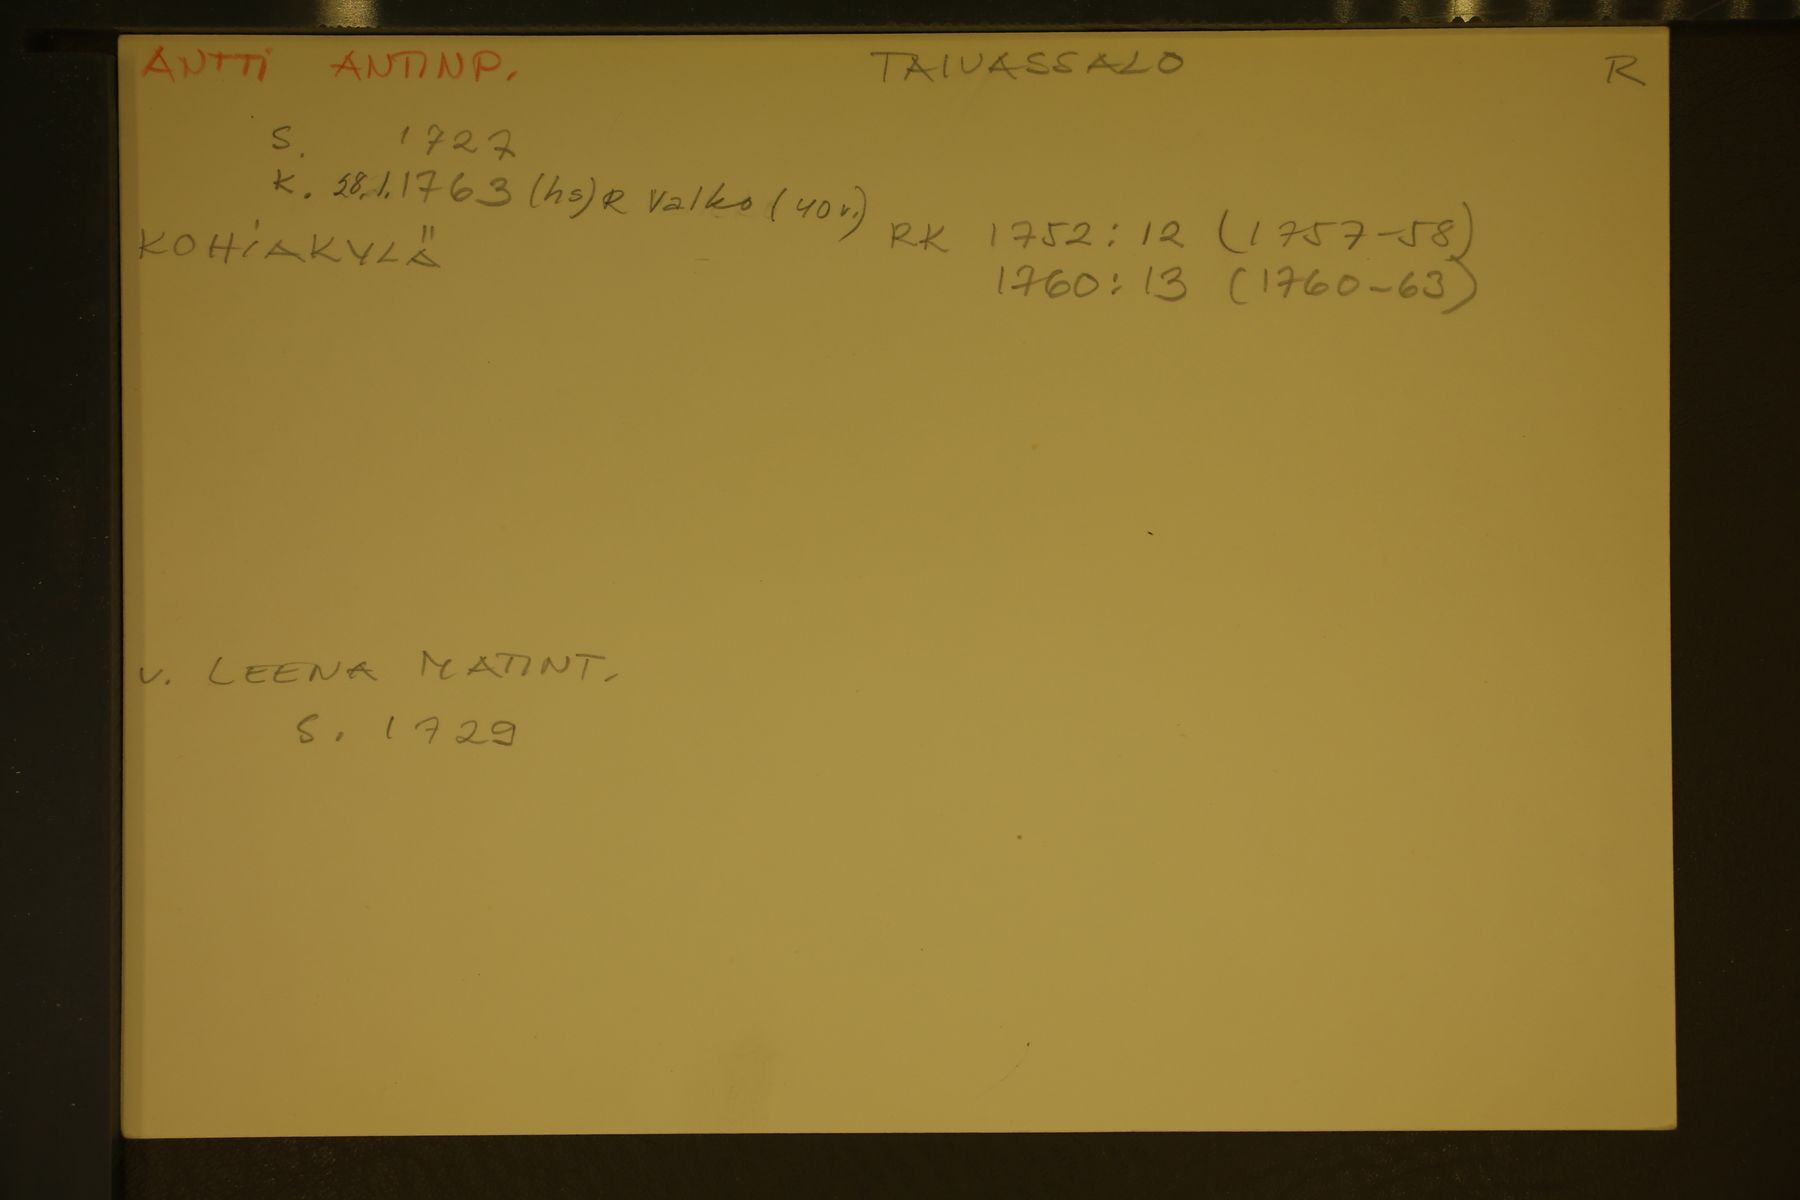 ANTTI ANTINP. TAIVASSALO R
S. 1727
K. 28.1.1763 (hs) R Valko (40 v.)
KOHIAKYLÄ RK 1752: 12 (1757-58)
1760: 13 (1760-63)
V. LEENA MATINT.
S. 1729